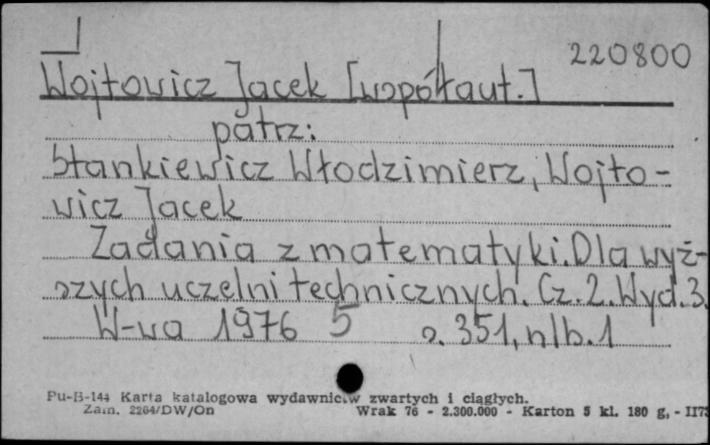 220800
Wojtowicz Jacek [współaut.]
patrz:
Stankiewicz Włodzimierz, Wojto-
wicz Jacek
Zadania z matematyki. Dla wyż-
szych uczelni technicznych. Cz. 2. Wyd. 3.
W-wa 1976 5 s. 351, nlb. 1
Pu-B-144 Karta katalogowa wydawnictw zwartych i ciągłych.
Zam. 2264/DW/On Wrak 76 - 2.300.000 - Karton 5 kl. 180 g, -